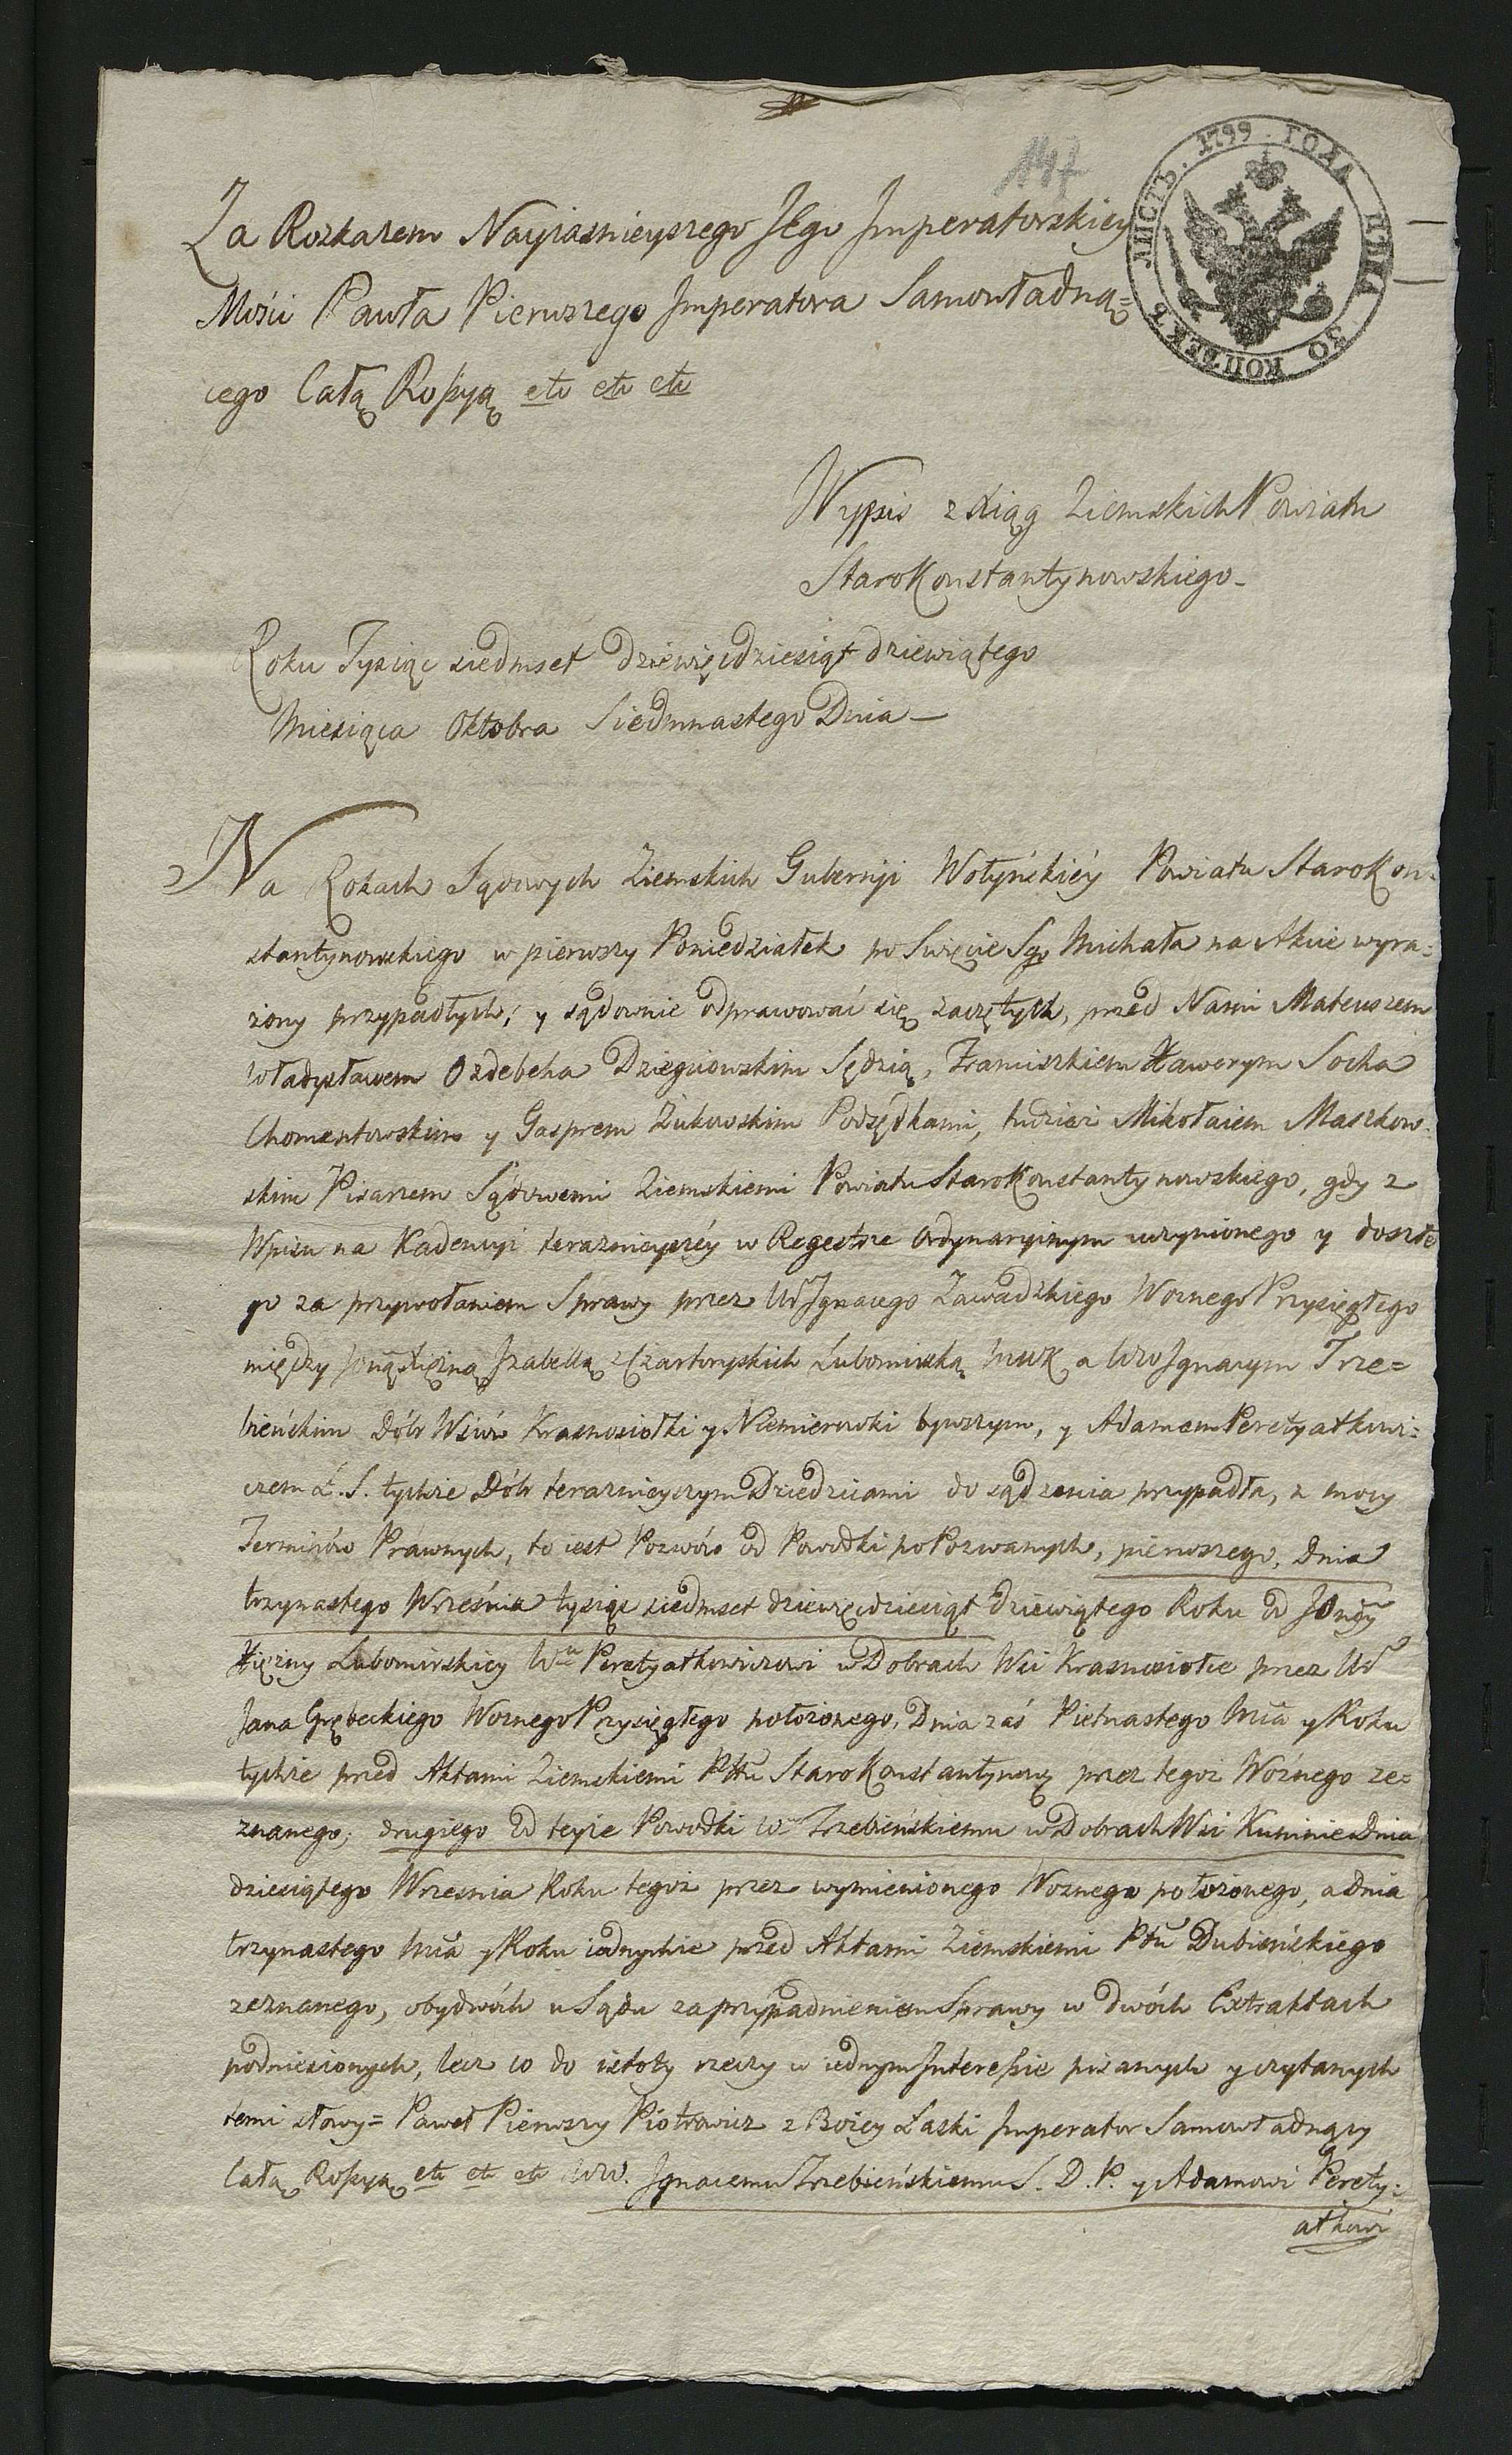 147
ЛИСТЪ . 1799 . ГОДА ЦѢНА 30 КОПѢЕКЪ
Za Rozkazem Nayiasnieyszego JEgo Jmperatorskiey
Mości Pawła Pierwszego Jmperatora Samowładną=
cego Całą Roſsyą etc etc etc
Wypis z Xiąg Ziemskich Powiatu
StaroKonstantynowskiego_
Roku Tysiąc siedmset dziewięćdziesiąt dziewiątego
Miesiąca Oktobra Siedmnastego Dnia—
Na Rokach Sądowych Ziemskich Gubernji Wołyńskiéy Powiatu StaroKon=
stantynowskiego w pierwszy Poniedziałek po Swięcie Sgo Michała na Akcie wyra=
żony przypadłych, y sądownie odprawować się zaczętych, przed Nami Mateuszem
Władysławem Ozdebcha Dziegciowskim Sędzią, Franciszkiem Xawerym Socha
Chomentowskim y Gasprem Żukowskim Podsędkami, tudzież Mikołaiem Maszkow=
skim Pisarzem Sądowemi Ziemskiemi Powiatu StaroKonstantynowskiego, gdy z
Wpisu na Kadencyi teraznieyszéy w Regestrze Ordynaryinym uczynionego y doszłe
go za przywołaniem Sprawy przez Ur Jgnacego Zawadzkiego Woznego Przysięgłego
między Xiężną Jzabellą z Czartoryskich Lubomirską MWK a Jgnacym Trze=
bieńskim Dóbr Wsiów Krasnosiołki y Niemierowki bywszym, y Adamem Peretyatkowi=
czem Ł. S. tychże Dóbr teraznieyszym Dziedzicami do sądzenia przypadła, z mocy
Terminów Prawnych, to iest Pozwów od Powodki po Pozwanych, pierwszego, dnia
trzynastego Września tysiąc siedmset dziewięćdziesiąt dziewiątego Roku od
Xiężny Lubomirskiey Wu Peretyatkowiczowi w Dobrach Wsi Krasnosiołce przez Ur
Jana Grębeckiego Woznego Przysięgłego położonego, Dnia zaś Pietnastego Mca y Roku
tychże przed Aktami Ziemskiemi Pttu StaroKonstantynow przez tegoż Woźnego ze=
znanego, drugiego od teyże Powodki Trzebieńskiemu w Dobrach Wsi Kuninie Dnia
dziesiątego Wrzesnia Roku tegoż przez wymienionego Woznego położonego, a dnia
trzynastego Mca y Roku iednychże przed Aktami Ziemskiemi Pttu Dubieńskiego
zeznanego, obydwóch u Sądu za przypadnieniem Sprawy w dwóch Extraktach
podniesionych, lecz co do istoty rzeczy w iednym Jntereſsie pisanych y czytanych
temi słowy= Paweł Pierwszy Piotrowicz z Bożey Łaski Jmperator Samowładnący
Całą Roſsyą etc etc etc WW. Jgnacemu Trzebieńskiemu S. D. P. y Adamowi Perety=
atkowi